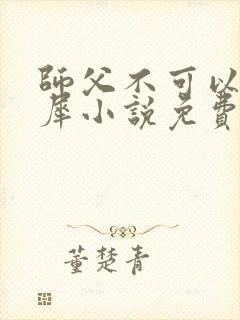 師父不可以
犀小說免費
董楚青